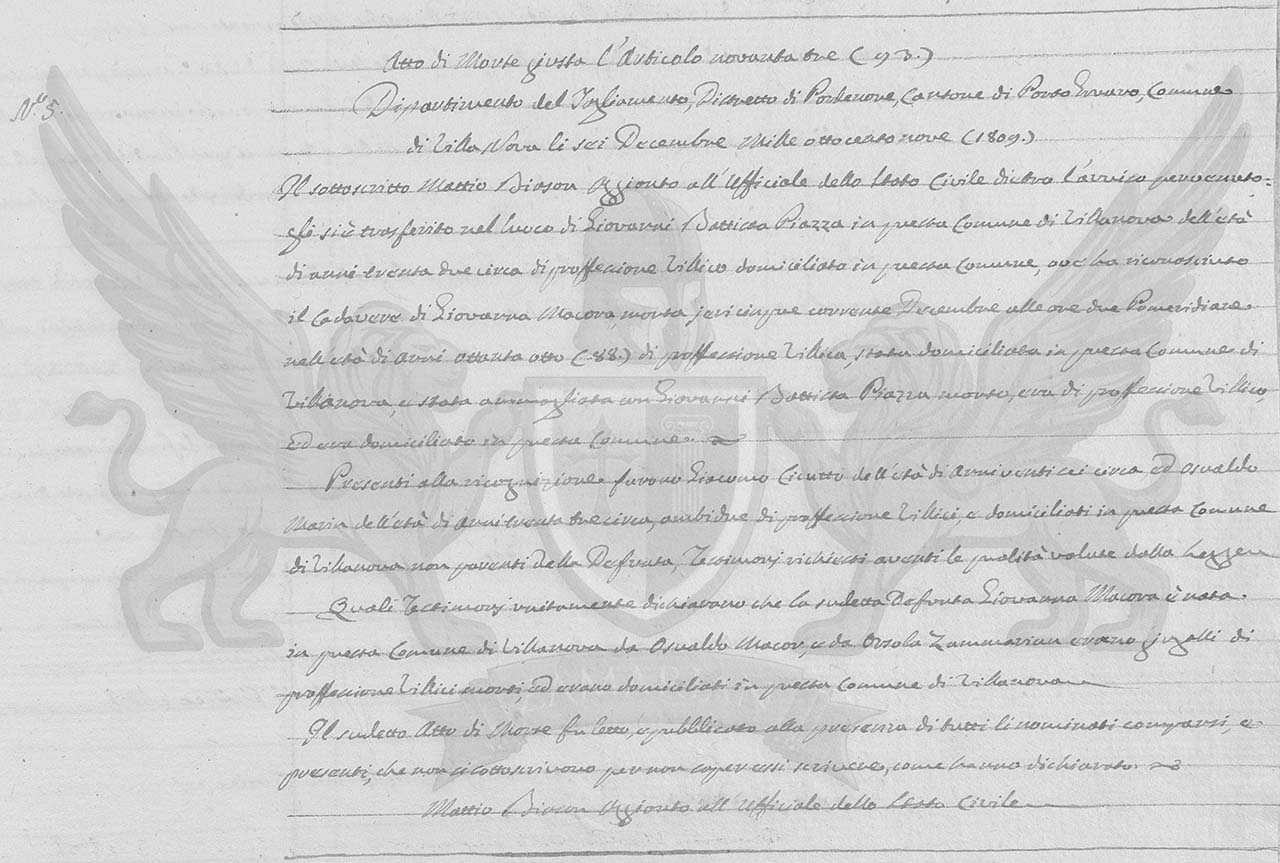 Atto di Morte giusta l'Articolo novanta tre (93.)
N.º 5.
Dipartimento del Tagliamento, Distretto di Pordenone, Cantone di Porto Gruaro, Comune
di Villa Nova li sei Decembre Mille ottocento nove (1809.)
Il sottoscritto Mattio Biason Aggionto all'Ufficiale dello Stato Civile dietro l'avviso pervenuto=
gli si è trasferito nel luoco di Giovanni Battista Piazza in questa Comune di Villanova dell'età
di anni trenta due circa di proffessione Villico domiciliato in questa Comune, ove ha riconosciuto
il Cadavere di Giovanna Macora, morta jeri cinque corrente Decembre alle ore due Pomeridiane
nell'età di Anni ottanta otto (88.) di proffessione Villica, stata domiciliata in questa Comune di
Villanova, e stata ammogliata con Giovanni Battista Piazza morto, era di proffessione Villico,
ed era domiciliato in questa Comune.
Presenti alla ricognizione furono Giacomo Cicutto dell'età di Anni venti sei circa, ed Osvaldo
Marin dell'età di Anni trenta tre circa, ambidue di proffessione Villici, e domiciliati in questa Comune
di Villanova non parenti della Defonta, Testimonj richiesti aventi le qualità volute dalla Legge
Quali Testimonj unitamente dichiarano che la sudetta Defonta Giovanna Macora è nata
in questa Comune di Villanova da Osvaldo Macor, e da Orsola Zammarian erano jugalli di
proffessione Villici morti, ed erano domiciliati in questa Comune di Villanova
Il sudetto Atto di Morte fu letto, e pubblicato alla presenza di tutti li nominati comparsi, e
presenti, che non si sottoscrivono per non saper essi scrivere, come hanno dichiarato.
Mattio Biason Aggionto all'Ufficiale dello Stato Civile